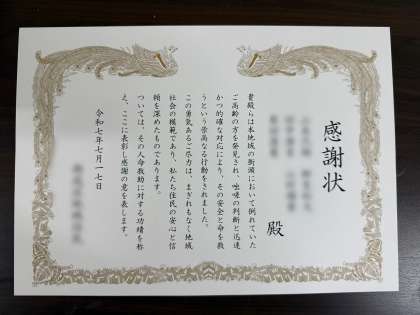 感謝状
殿
貴殿らは本地域の街頭において倒れていた
ご高齢の方を発見され、咄嗟の判断と迅速
かつ的確な対応により、その安全と命を救
うという崇高なる行動をされました。
この勇気あるご尽力は、まぎれもなく地域
社会の模範であり、私たち住民の安心と信
頼を深めたものであります。
ついては、その人命救助に対する功績を称
え、ここに表彰し感謝の意を表します。
令和七年七月一七日